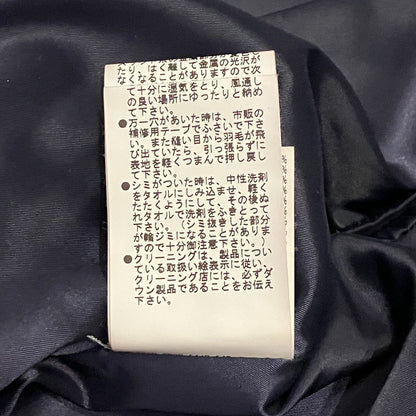 り、はく離して金属の光沢が次
なくなることがあります
て十分に湿気をとり、風通し
の良い場所にゆったりと納め
て下さい。
●万一穴があいた時は、市販の
補修用テープでふさいで下さ
い。また縫い目から羽毛が飛
び出ていたら、引っ張らずに
表地を軽くつまんで押し戻し
て下さい。
●シミがついた時は、中性洗剤
をタオルにしみ込ませ、軽く
たたくようにして、その後ぬ
れタオルで洗剤をふきとって
下さい。(シミ抜きした部分
が輪ジミになることがありま
すので十分御注意下さい。)
●クリーニングは、製品につい
ている取扱い絵表示に従い、
クリーニング店には、必ずダ
ウン製品であることをお伝え
下さい。